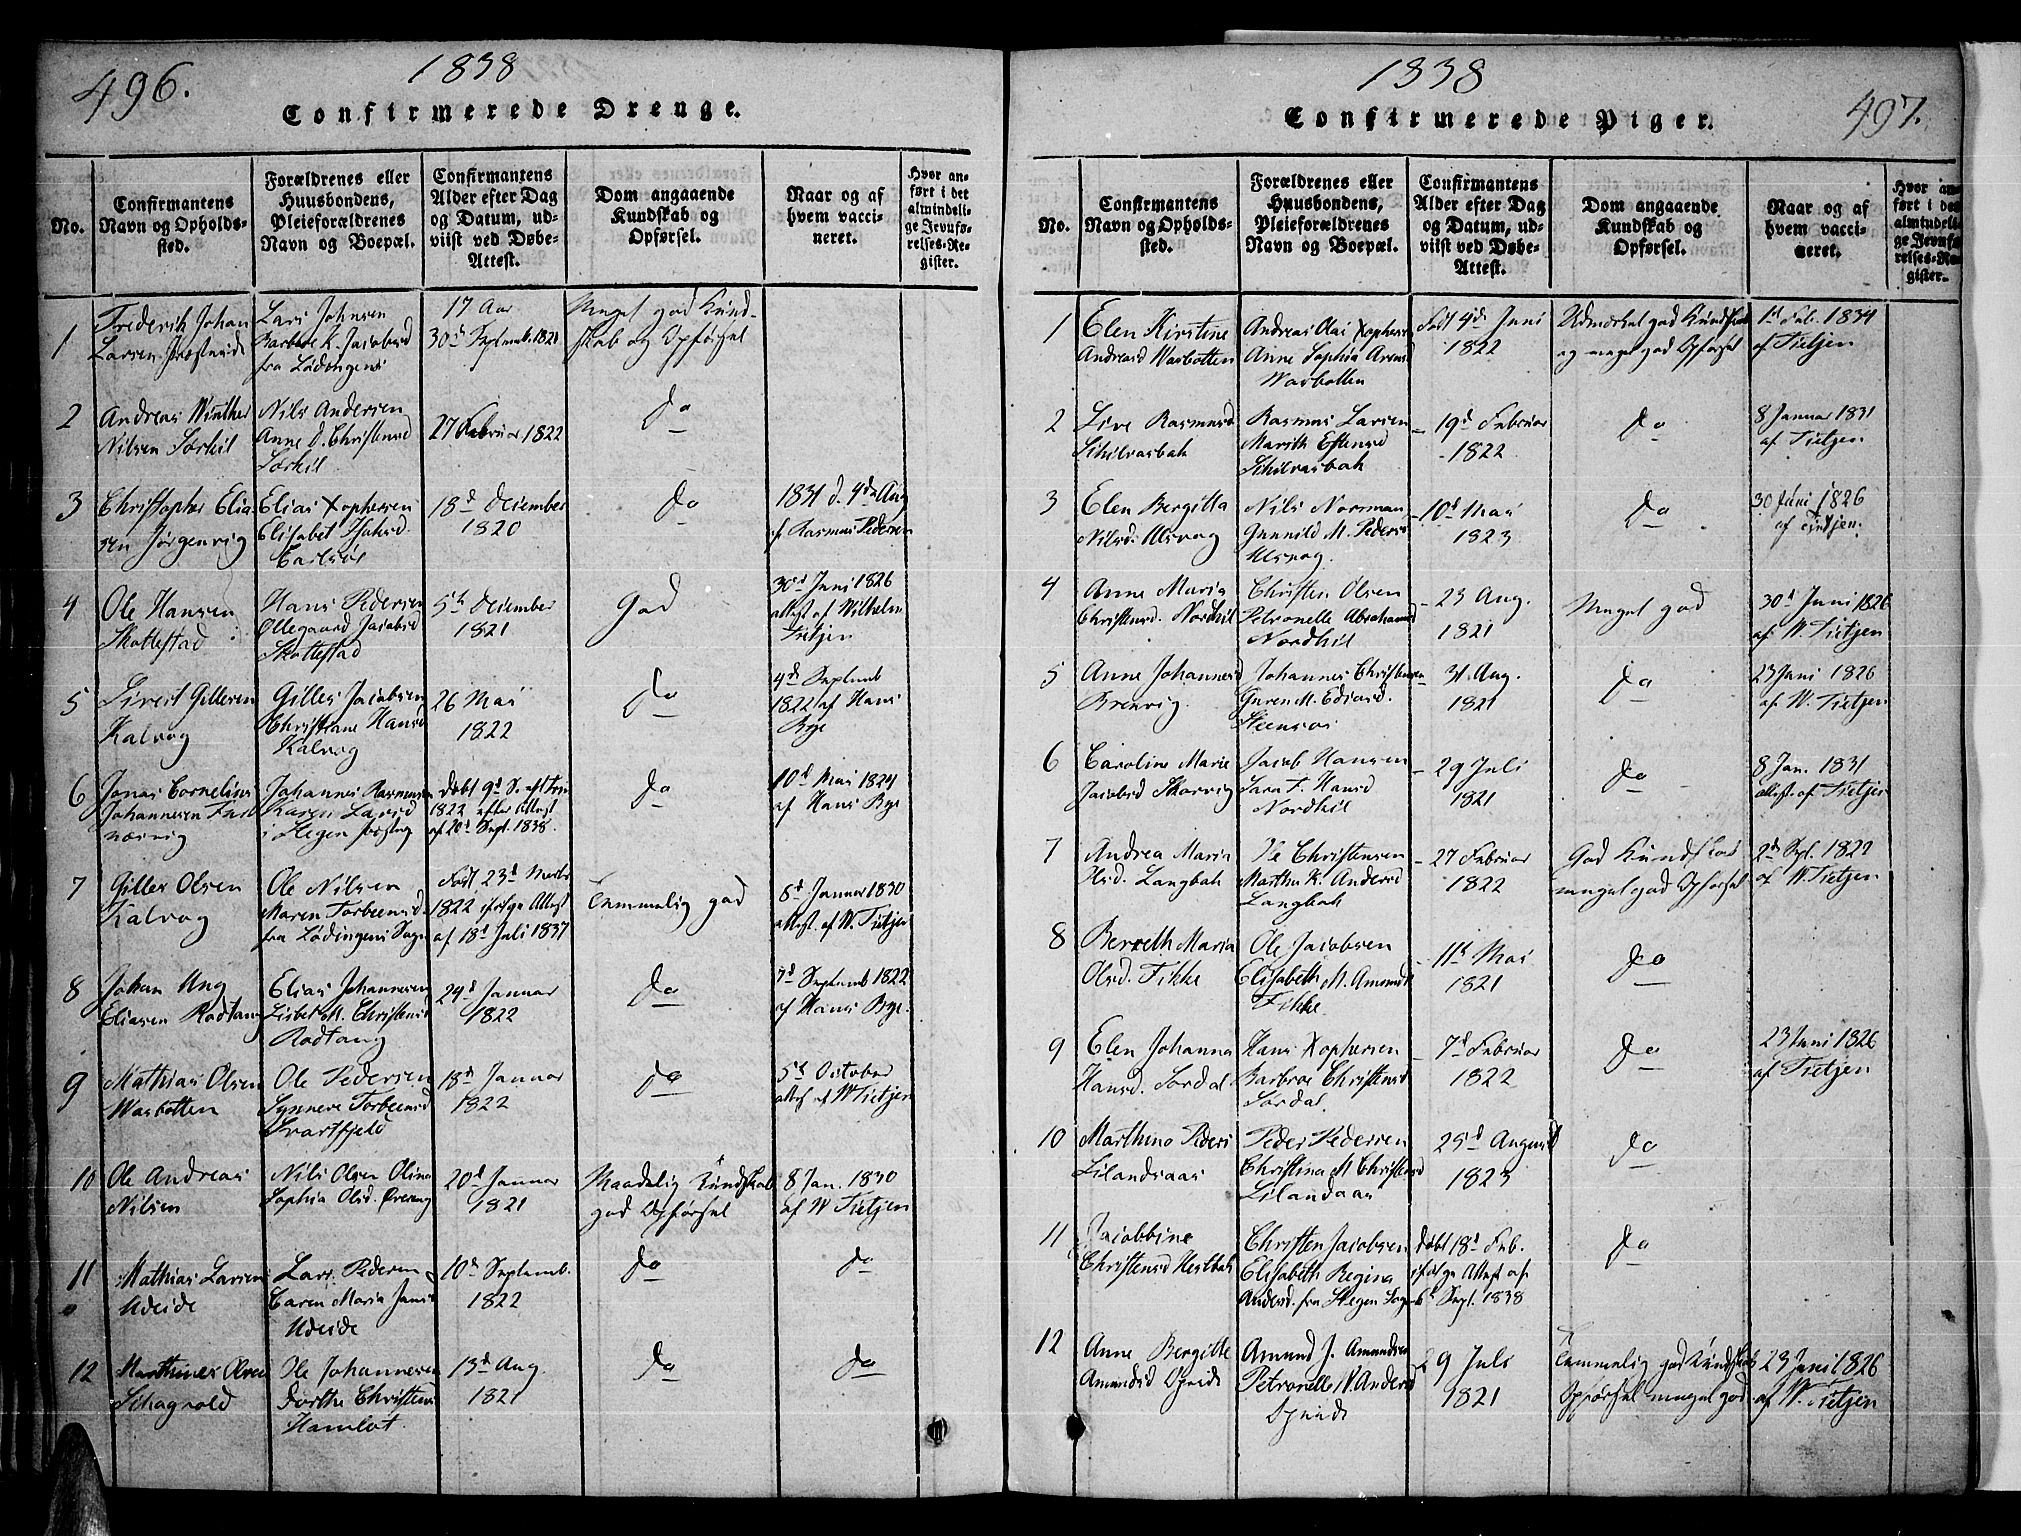 496.
1838
Confirmerede Drenge.
No.
Confirmantens
Navn og Opholds-
sted.
Forældrenes eller
Huusbondens,
Pleieforældrenes
Navn og Boepæl.
Confirmantens
Alder efter Dag
og Datum, ud-
viist ved Døbe-
Attest.
Dom angaaende
Kundskab og
Opførsel.
Naar og af
hvem vacci-
neret.
Hvor an-
ført i det
almindeli-
ge Jevnfø-
relses-Re-
gister.
1
Frederik Johan
Larsen
Lars Johnsen
Barbroe K. Jacobsd
fra Lødingens
17 Aar
30d Septemb. 1821
Meget god Kund-
skab og Opførsel
2
Andreas Winther
Nilsen Sørkil
Nils Andersen
Anne D. Christensd
Sørkil
27 Februar 1822
do
3
Christopher Elia-
sen Jørgenvig
Elias Xophersen
Elisabet
18d December
1820
do
1831 d. 4de Aug
af Rasmus Pedersen
4
Ole Hansen
Skottestad
Hans Pedersen
Ollegaard Jacobsd
Skottestad
5th December
1821
God
30d Juni 1826
attest af Wilhelm
Tietjen
5
Sivert Gillesen
Kalvog
Gilles Jacobsen
Christiane Hansd
Kalvog
26 Mai
1822
do
4d Septemb
1822 af Hans
Bye
6
Jonas Cornelius
Johannesen
Johannes Rasmusen
Karen Larsd
i Stegen
Døbt 9d S. eft Trin
1822 efter Attest
af 20d Sept. 1838.
do
10d Mai 1824
af Hans Bye
7
Gilles Olsen
Kalvog
Ole Nilsen
Maren Torbeensd.
fra Lødingens Sogn
Født 23d Marts
1822 ifølge Attest
af 18d Juli 1837
Temmelig god
8d Januar 1830
attest. af W. Tietjen
8
Johan Ung
Eliasen Rødtang
Elias Johannesen
Lisbet M. Christensd
Rødtang
24d Januar
1822
do
7d Septemb 1822
af Hans Bye.
9
Mathias Olsen
Wasbotten
Ole Pedersen
Synneve Torbeensd
Svartfjeld
18d Januar
1822
do
5th October
attest af W Tietjen
10
Ole Andreas
Nilsen
Nils Olsen Olina
Sophia Olsd.
20d Januar
1821
Maadelig Kundskab
god Opførsel
8 Jan. 1830
af W Tietjen
11
Mathias Larsen
Udeide
Lars Pedersen
Caren Maria Jansd
Udeide
10d Septemb.
1822
do
do
12
Marthines Olsen
Schagvold
Ole Johannesen
Dorthe Christensd
Hamlot
13d Aug
1821
do
do
1838
497.
Confirmerede Piger.
No.
Confirmantens
Navn og Opholds-
sted.
Forældrenes eller
Huusbondens,
Pleieforældrenes
Navn og Boepæl.
Confirmantens
Alder efter Dag
og Datum, ud-
viist ved Døbe-
Attest.
Dom angaaende
Kundskab og
Opførsel.
Naar og af
hvem vacci-
neret.
Hvor an-
ført i det
almindeli-
ge Jevnfø-
relses-Re-
gister.
1
Elen Kirstine
Andreasd Wasbotten
Andreas Olai Xophersen
Anne Sophia
Wasbotten
Født 4d Juni
1822
Udmærket god Kundskab
og meget god Opførsel
1st Feb. 1834
af Tietjen
2
Live Rasmusd
Schilvasbak
Rasmus Larsen
Marith Estensd
Schilvasbak
19d Februar
1822
do
8 Januar 1831
af Tietjen
3
Elen Bergitta
Nilsd. Ulsvog
Nils Norman
Gunnild M. Pedersd
Ulsvog.
10d Mai
1823
do
30 Juni 1826
af Tietjen.
4
Anne Maria
Christensd. Nordkil
Christen Olsen
Petronelle Abrahamsd
Nordkil
23 Aug.
1821
Meget god
30d Juni 1826
af W. Tietjen
5
Anne Johannesd
Brenvig.
Johannes Christensen
Guren M. Ediasd.
Steensoe
31 Aug.
1821
do
23 Juni 1826
af W. Tietjen
6
Caroline Marie
Jacobsd Skorvig
Jacob Hansen
Sara F. Hansd
Nordkil
29 Juli
1821
do
8 Jan. 1831
attest. af Tietjen
7
Andrea Maria
Olsd. Langbak
Ole Christensen
Martha K. Andersd
Langbak
27 Februar
1822
God Kundskab
meget god Opførsel
2d Sept. 1822
af W. Tietjen
8
Bereth Maria
Olsd. Fikke
Ole Jacobsen
Elisabeth M. Amundsd
Fikke
11th Mai
1821
do
9
Elen Johanna
Hansd. Sørdal
Hans Xophersen
Barbroe Christensd
Sørdal.
7d Februar
1822
do
23 Juni 1826
af Tietjen
10
Marthina Peders
Lilandsaas
Peder Pedersen
Christina M Christensd
Lilandaas
25d August
1823
do
11
Jacobbine
Christensd Hestbak
Christen Jacobsen
Elisabeth Regina
Andersd. fra Stegen Sogn
Døbt 18d Feb.
ifølge Attest af
6th Sept. 1838
do
12
Anne Bergitte
Amundsd
Amund J. Amundsen
Petronelle N. Andersd
29 Juli
1821
Temmelig god Kundskab
Opførsel meget god
23 Juni 1826
af W. Tietjen